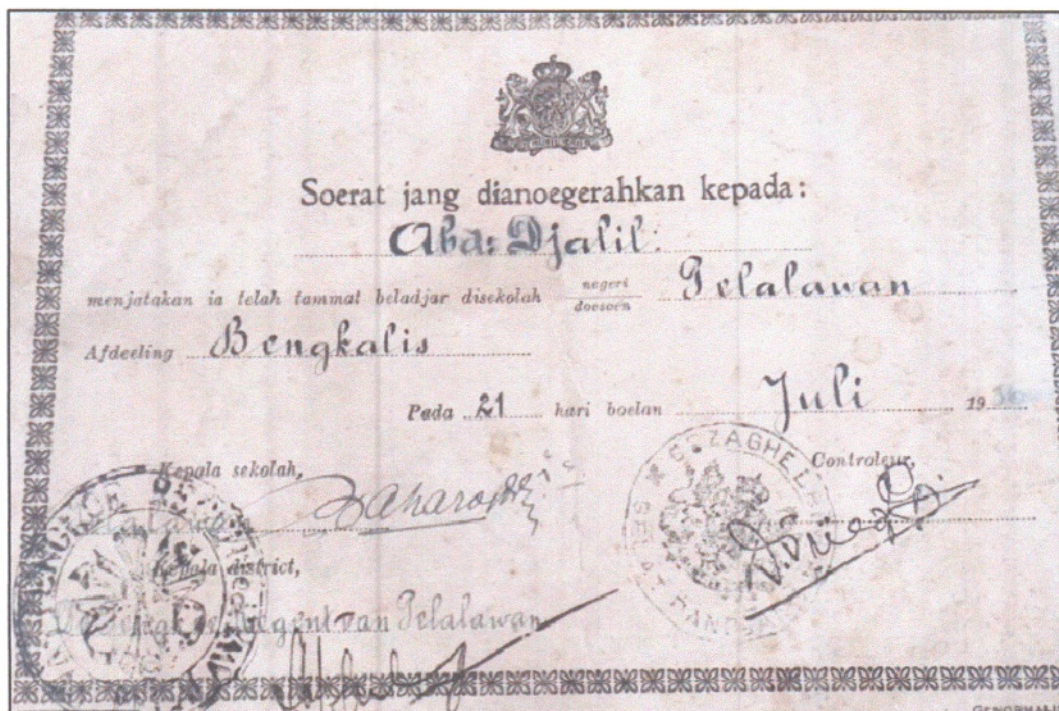 Soerat jang dianoegerahkan kepada:
Abd: Djalil.
menjatakan ia telah tammat beladjar disekolah negeri Pelalawan
doesoen
Afdeeling Bengkalis
Pada 21 hari boelan Juli 19
Kepala sekolah,
Controleur,
Kepala district,
Regent van Pelalawan